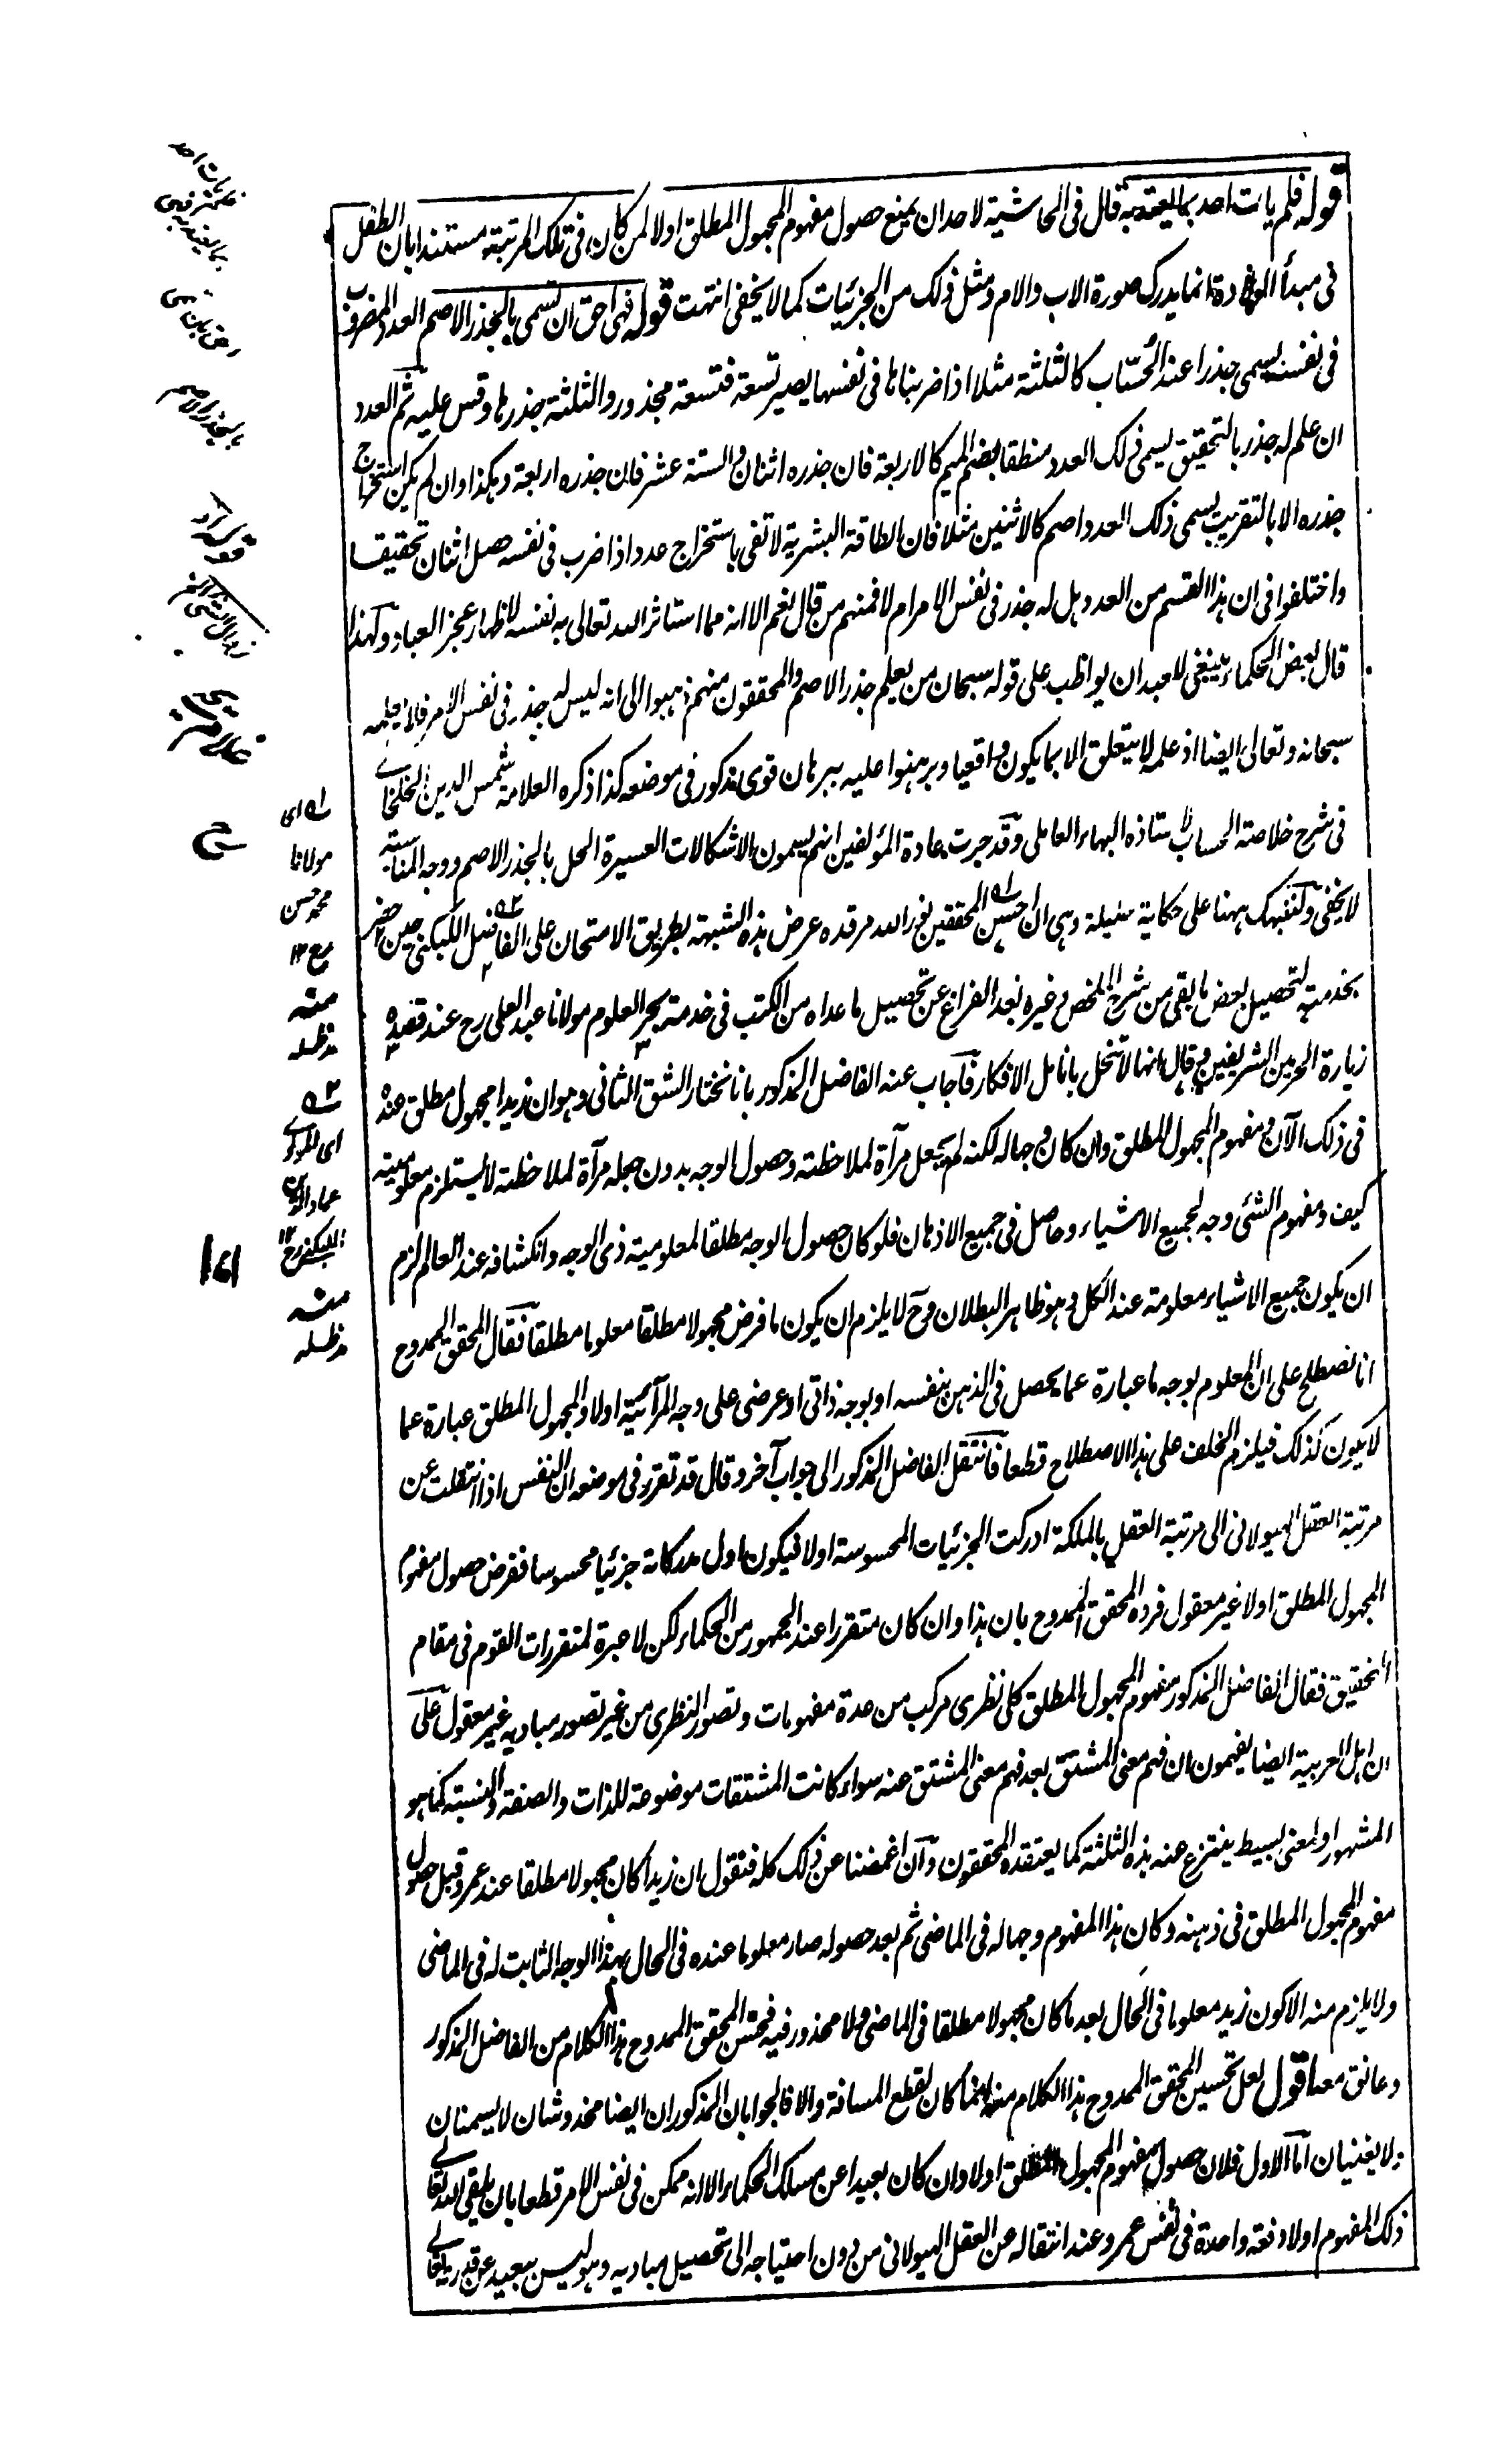 قوله فلم يات احد بما يعتد به قال فى الحاشية لاحد ان يمنع حصول مفهوم المجهول المطلق اولا لمن كان فى تلك المرتبة مستندا بان الطفل
فى مبدأ الولادة انما يدرك صورة الاب والام ومثل ذلك من الجزئيات كما لا يخفى انتهت قوله فهى احق ان تسمى بالجذر الاصم العدد المضروب
فى نفسه يسمى جذرا عند الحساب كالثلثة مثلا اذا ضربناها فى نفسها يصير تسعة فتسعة مجذور والثلثة جذرها وقس عليه ثم العدد
ان علم له جذر بالتحقيق يسمى ذلك العدد منطقا بضم الميم كالاربعة فان جذره اثنان والستة عشر فان جذره اربعة وهكذا وان لم يكن استخراج
جذره الا بالتقريب يسمى ذلك العدد اصم كالاثنين مثلا فان الطاقة البشرية لا تفى باستخراج عدد اذا ضرب فى نفسه حصل اثنان تحقيقا
واختلفوا فى ان هذا القسم من العدد هل له جذر فى نفس الامر ام لا فمنهم من قال نعم الا انه مما استاثر الله تعالى به نفسه لاظهار عجز العباد ولهذا
قال بعض الحكماء ينبغى لعبد ان يواظب على قوله سبحان من يعلم جذر الاصم والمحققون منهم ذهبوا الى انه ليس له جذر فى نفس الامر فلا يعلمه
سبحانه وتعالى ايضا اذ علمه لا يتعلق الا بما يكون واقعيا وبرهنوا عليه ببرهان قوى مذكور فى موضعه كذا ذكره العلامة شمس الدين الخلخالى
فى شرح خلاصة الحساب لاستاذه البهاء العاملى وقد جرت عادة المؤلفين انهم يسمون الاشكالات العسيرة الحل بالجذر الاصم ووجه المناسبة
لا يخفى ولننبهك ههنا على حكاية وهى ان احسن المحققين نور الله مرقده عرض هذه الشبهة بطريق الامتحان على الفاضل اللبكنى حين حضر
بخدمته لتحصيل بعض ما بقى من شرح الملخص وغيره بعد الفراغ عن تحصيل ما عداه من الكتب فى خدمة بحر العلوم مولانا عبد العلى رح عند قصده
زيارة الحرمين الشريفين وقال انها لا تنحل بانامل الافكار فاجاب عنه الفاضل المذكور بانا نختار الشق الثانى وهو ان زيدا مجهول مطلق عنده
فى ذلك الآن ومفهوم المجهول المطلق وان كان وجها له لكنه لم يجعل مرآة لملاحظته وحصول الوجه بدون جعله مرآة لملاحظته لا يستلزم معلوميته
كيف ومفهوم الشئ وجه لجميع الاشياء وحاصل فى جميع الاذهان فلو كان حصول الوجه مطلقا لمعلومية ذى الوجه وانكشافه عند العالم لزم
ان يكون جميع الاشياء معلومة عند الكل وهو ظاهر البطلان وح لا يلزم ان يكون ما فرض مجهولا مطلقا معلوما مطلقا فقال المحقق الممدوح
انا نصطلح على ان المعلوم بوجه ما عبارة عما يحصل فى الذهن بنفسه او بوجه ذاتى او عرضى على وجه المرآتية اولا والمجهول المطلق عبارة عما
لا يكون كذلك فيلزم الخلف على هذا الاصطلاح قطعا فانتقل الفاضل المذكور الى جواب آخر وقال قد تقرر فى موضعه ان النفس اذا انتقلت عن
مرتبة العقل الهيولانى الى مرتبة العقل بالملكة ادركت الجزئيات المحسوسة اولا فيكون اول مدركاته جزئيا محسوسا ففرض حصول مفهوم
المجهول المطلق اولا غير معقول فرده المحقق الممدوح بان هذا وان كان متقررا عند الجمهور من الحكماء لكن لا عبرة لمتقررات القوم فى مقام
التحقيق فقال الفاضل المذكور مفهوم المجهول المطلق كلى نظرى مركب من عدة مفهومات وتصور النظرى من غير تصور مباديه غير معقول على
ان اهل العربية ايضا يفهمون ان فهم معنى المشتق بعد فهم معنى المشتق منه سواء كانت المشتقات موضوعة للذات والصفة والنسبة كما هو
المشهور او لمعنى بسيط ينتزع عنه هذه الثلثة كما يعتقده المحققون وان اغمضنا عن ذلك كله فنقول ان زيدا كان مجهولا مطلقا عند عمرو قبل حصول
مفهوم المجهول المطلق فى ذهنه وكان هذا المفهوم وجها له فى الماضى ثم بعد حصوله صار معلوما عنده فى الحال بهذا الوجه الثابت له فى الماضى
ولا يلزم منه الا كون زيد معلوما فى الحال بعد ما كان مجهولا مطلقا فى الماضى ولا محذور فيه فحسن المحقق الممدوح هذا الكلام من الفاضل المذكور
وعانق معه اقول لعل تحسين المحقق الممدوح هذا الكلام منه انما كان لقطع المسافة والا فالجوابان المذكوران ايضا مخدوشان لا يسمنان
ولا يغنيان اما الاول فلان حصول مفهوم المجهول المطلق اولا وان كان بعيدا عن مسلك الحكماء الا انه ممكن فى نفس الامر قطعا بان يلقى الله تعالى
ذلك المفهوم اولا دفعة واحدة فى نفس عمرو عند انتقاله عن العقل الهيولانى من دون احتياجه الى تحصيل مباديه وهو ليس ببعيد عن قدرته تعالى
اى
مولانا
محمد حسن
رح ١٢
منه
مد ظله
اى المولوى
عماد الدين
اللبكنى رح ١٢
منه
مد ظله